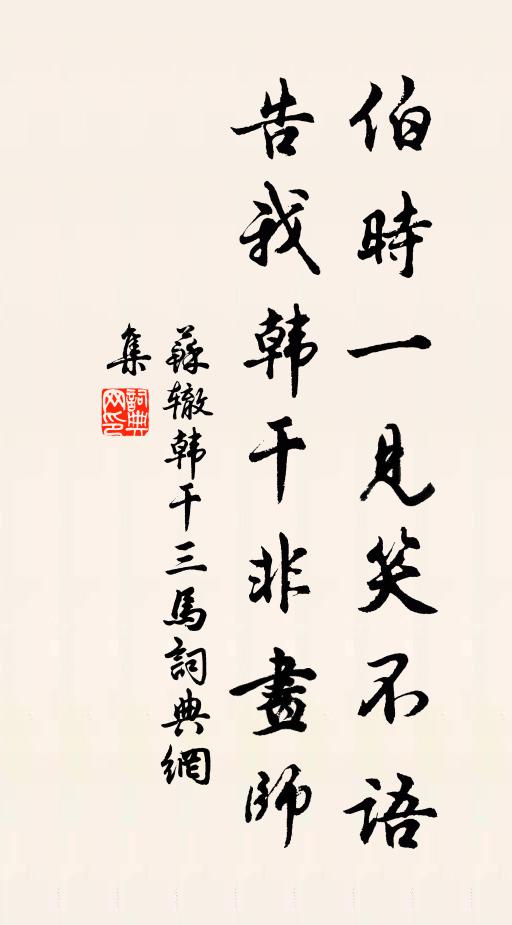 伯時一見笑不語
告我韩干非畫師
蘇辙韩干三馬詞典網
集
詞典
网印